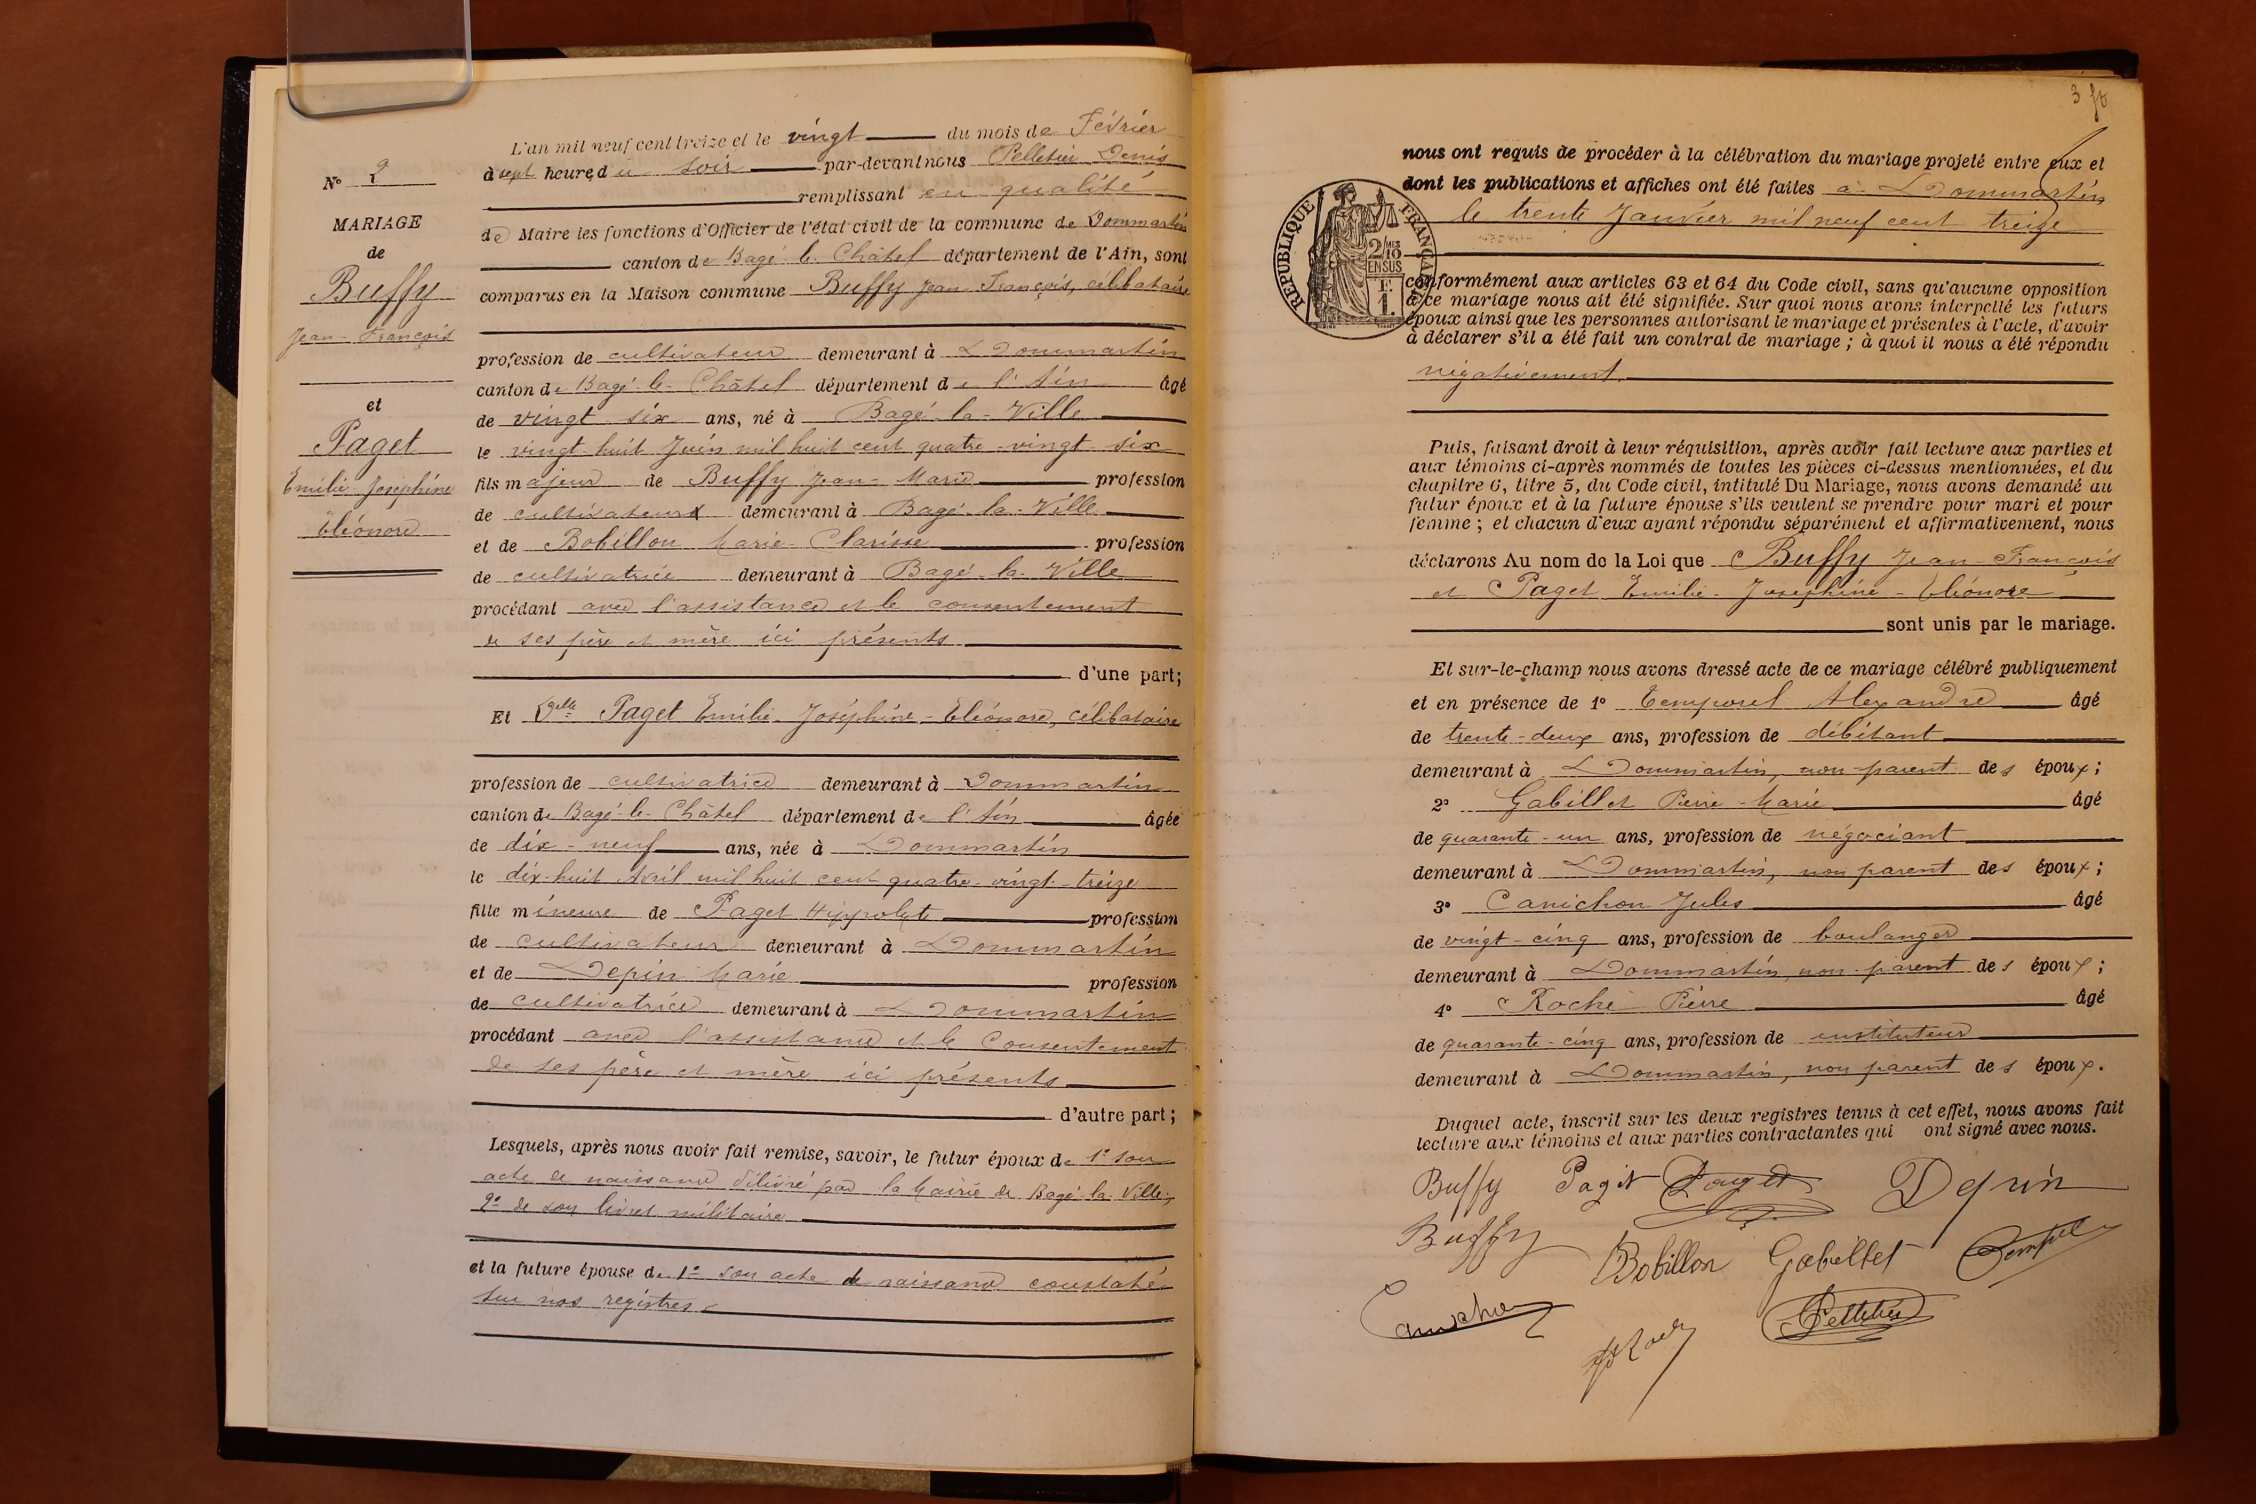 N° 2
MARIAGE
de
Buffy
Jean-François
et
Paget
Emilie-Joséphine
Eléonore
L'an mil neuf cent treize et le vingt du mois de Février
à sept heures du soir par-devant nous Pelletier Denis
remplissant en qualité
de Maire les fonctions d'Officier de l'état civil de la commune de Dommartin
canton de Bagé-le-Châtel département de l'Ain, sont
comparus en la Maison commune Buffy Jean François, célibataire
profession de cultivateur demeurant à Dommartin
canton de Bagé-le-Châtel département de l'Ain âgé
de vingt six ans, né à Bagé-la-Ville
le vingt-huit Juin mil huit cent quatre-vingt-six
fils majeur de Buffy Jean-Marie profession
de cultivateur demeurant à Bagé-la-Ville
et de Bobillon Marie-Clarisse profession
de cultivatrice demeurant à Bagé-la-Ville
procédant avec l'assistance et le consentement
de ses père et mère ici présents
d'une part;
Et Delle Paget Emilie-Joséphine-Eléonore, célibataire
profession de cultivatrice demeurant à Dommartin
canton de Bagé-le-Châtel département de l'Ain âgée
de dix-neuf ans, née à Dommartin
le dix-huit Avril mil huit cent quatre-vingt-treize
fille mineure de Paget Hippolyte profession
de cultivateur demeurant à Dommartin
et de Depin Marie profession
de cultivatrice demeurant à Dommartin
procédant avec l'assistance et le Consentement
de ses père et mère ici présents
d'autre part;
Lesquels, après nous avoir fait remise, savoir, le futur époux de 1° son
acte de naissance délivré par la Mairie de Bagé-la-Ville,
2° de son livret militaire
et la future épouse de 1° son acte de naissance constaté
sur nos registres
3
nous ont requis de procéder à la célébration du mariage projeté entre eux et
dont les publications et affiches ont été faites à Dommartin
le trente Janvier mil neuf cent treize
RÉPUBLIQUE FRANÇAISE
2/10 EN SUS
1 F.
conformément aux articles 63 et 64 du Code civil, sans qu'aucune opposition
à ce mariage nous ait été signifiée. Sur quoi nous avons interpellé les futurs
époux ainsi que les personnes autorisant le mariage et présentes à l'acte, d'avoir
à déclarer s'il a été fait un contrat de mariage; à quoi il nous a été répondu
négativement.
Puis, faisant droit à leur réquisition, après avoir fait lecture aux parties et
aux témoins ci-après nommés de toutes les pièces ci-dessus mentionnées, et du
chapitre 6, titre 5, du Code civil, intitulé Du Mariage, nous avons demandé au
futur époux et à la future épouse s'ils veulent se prendre pour mari et pour
femme; et chacun d'eux ayant répondu séparément et affirmativement, nous
déclarons Au nom de la Loi que Buffy Jean-François
et Paget Emilie-Joséphine-Eléonore
sont unis par le mariage.
Et sur-le-champ nous avons dressé acte de ce mariage célébré publiquement
et en présence de 1° Temporel Alexandre âgé
de trente-deux ans, profession de débitant
demeurant à Dommartin, non parent des époux;
2° Gabillet Pierre-Marie âgé
de quarante-un ans, profession de négociant
demeurant à Dommartin, non parent des époux;
3° Canichon Jules âgé
de vingt-cinq ans, profession de boulanger
demeurant à Dommartin, non parent des époux;
4° Roche Pierre âgé
de quarante-cinq ans, profession de instituteur
demeurant à Dommartin, non parent des époux.
Duquel acte, inscrit sur les deux registres tenus à cet effet, nous avons fait
lecture aux témoins et aux parties contractantes qui ont signé avec nous.
Buffy Paget Paget Depin
Buffy Bobillon Gabillet
Canichon Pelletier